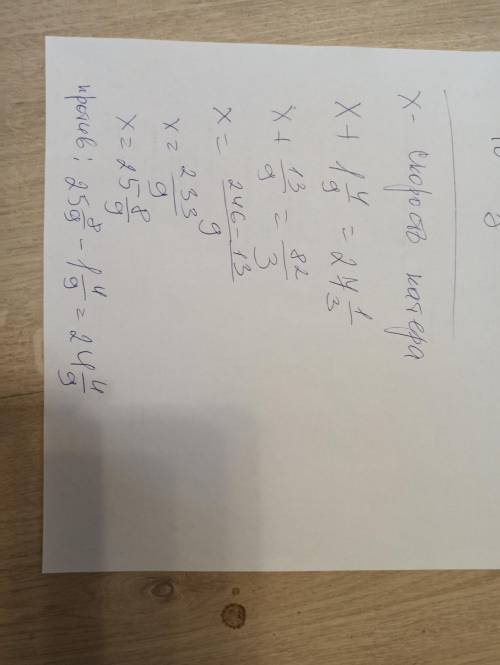 X - скорость катера
X + 1 4/9 = 27 1/3
X + 13/9 = 82/3
X = (246-13)/9
X = 233/9
X = 25 8/9
против: 25 8/9 - 1 4/9 = 24 4/9